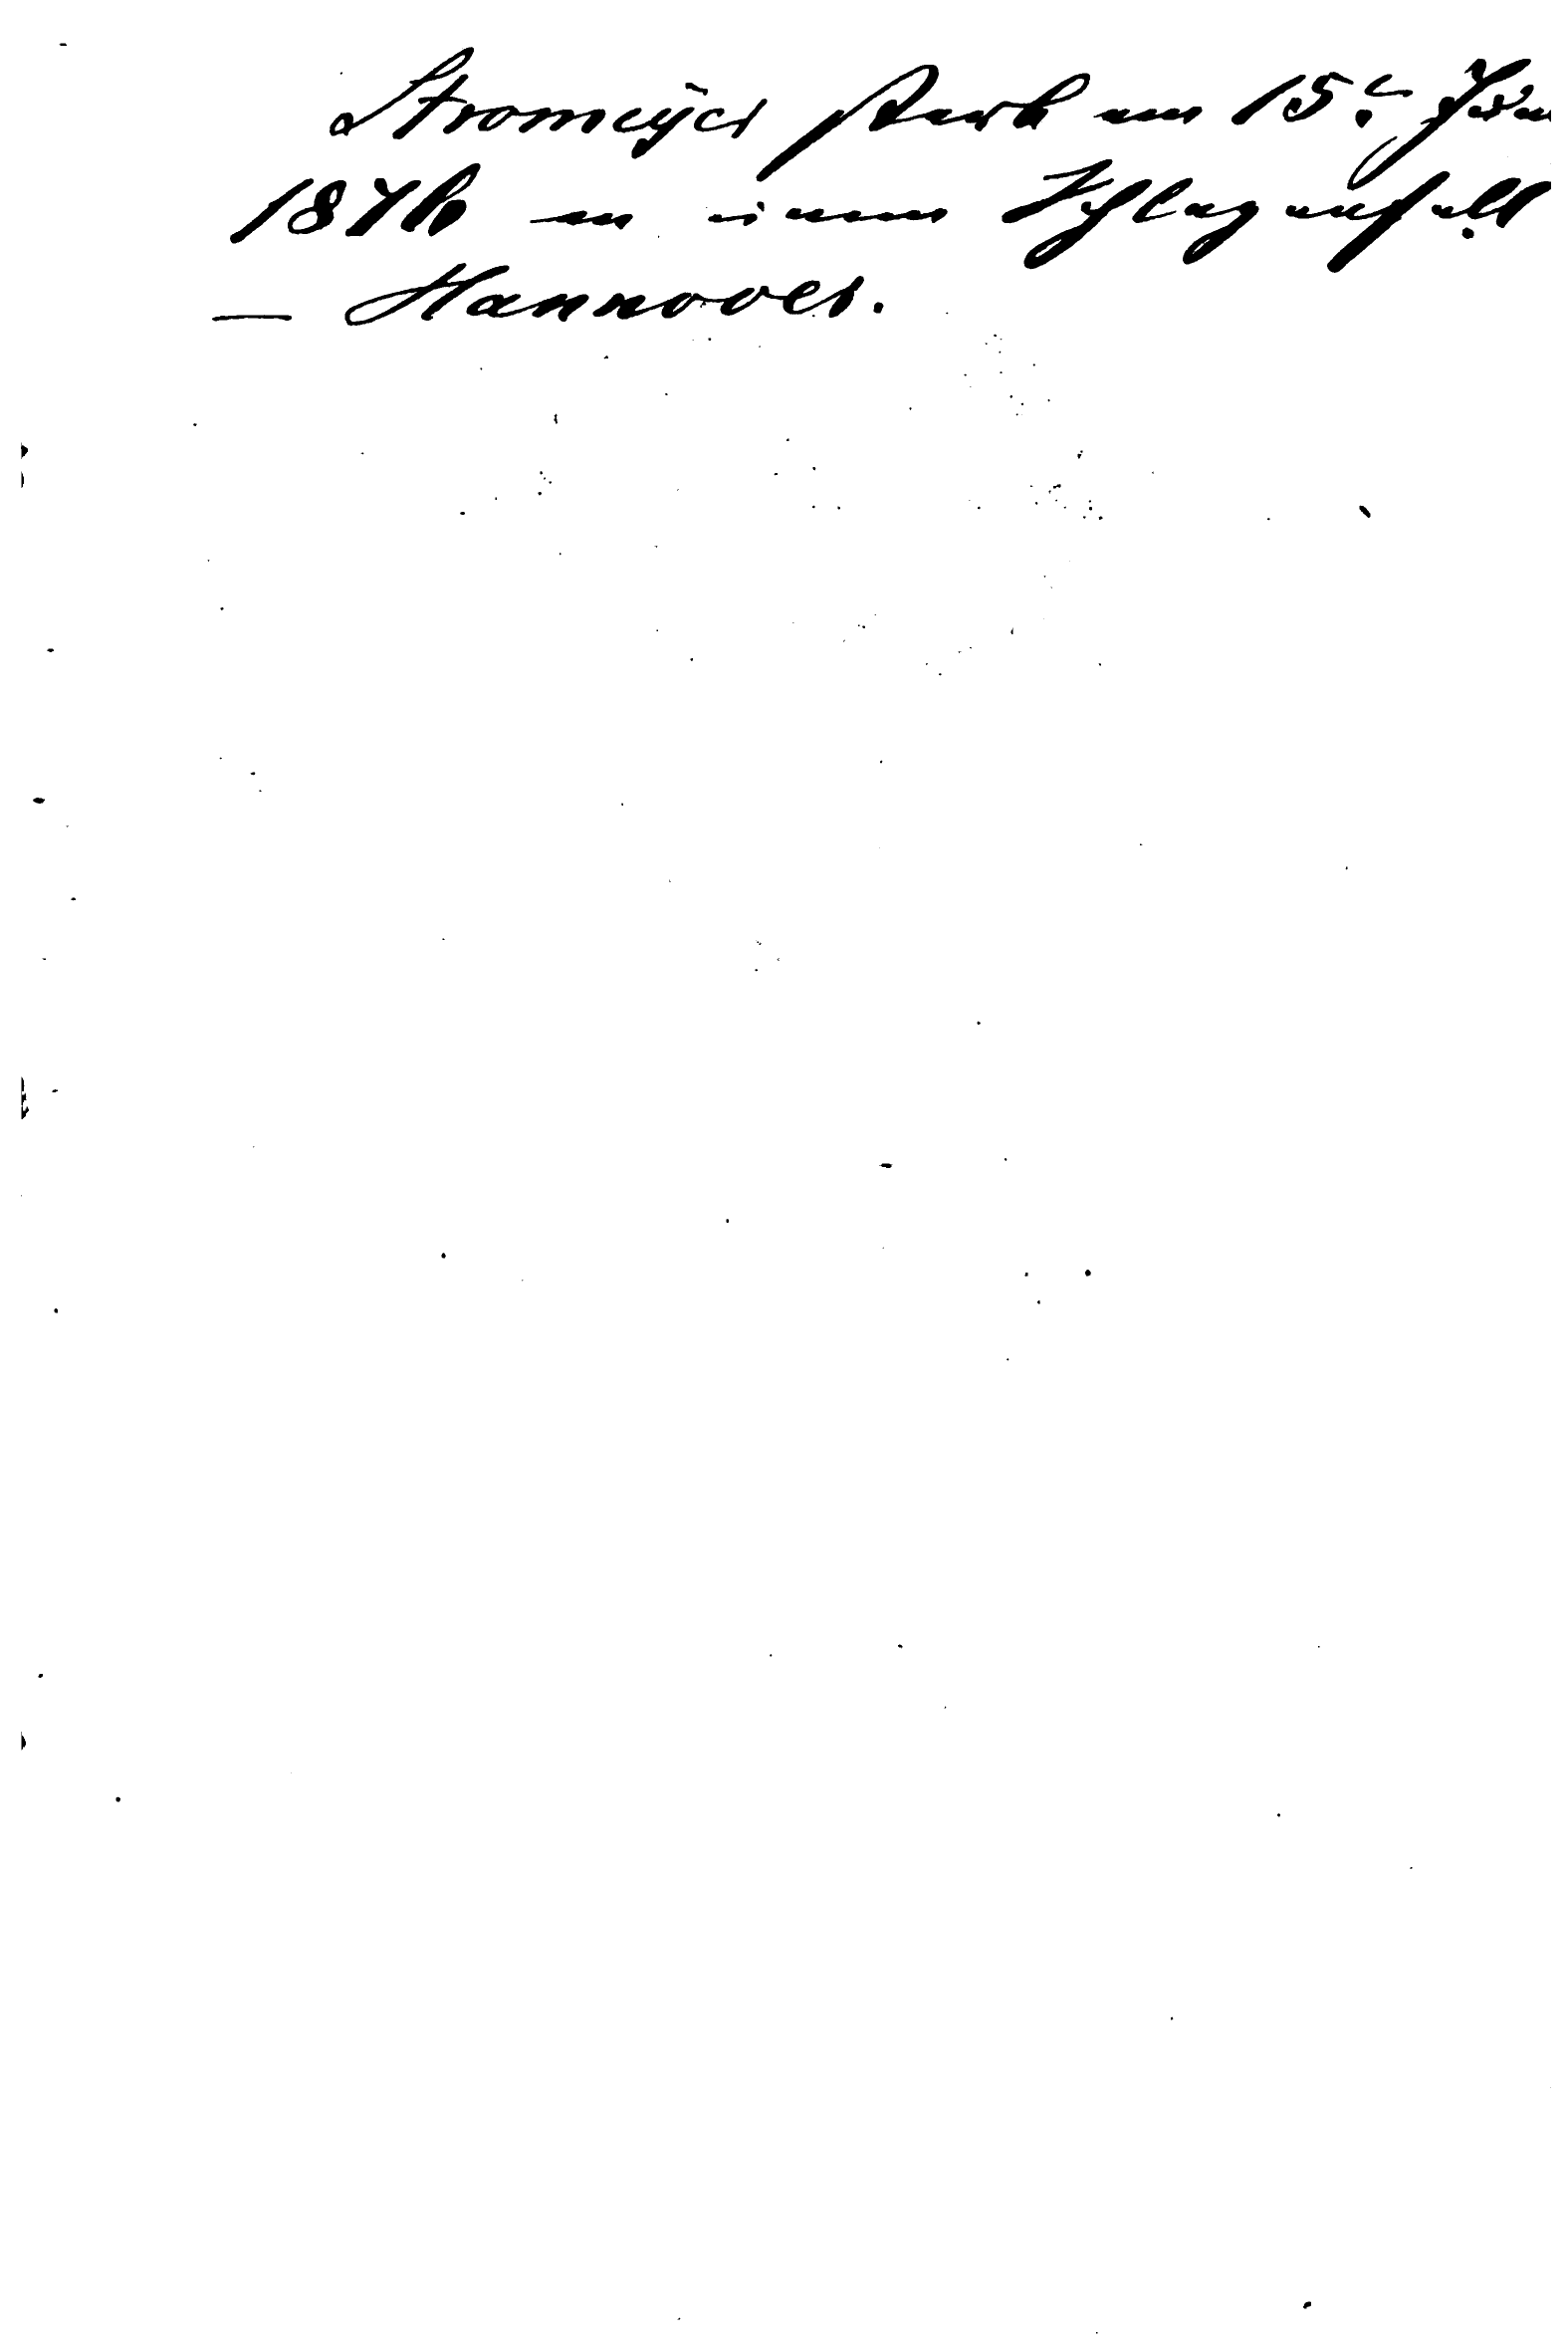 Stromeyer starb am 15. Juni
1876 an einem Schlaganfall
— Hannover.